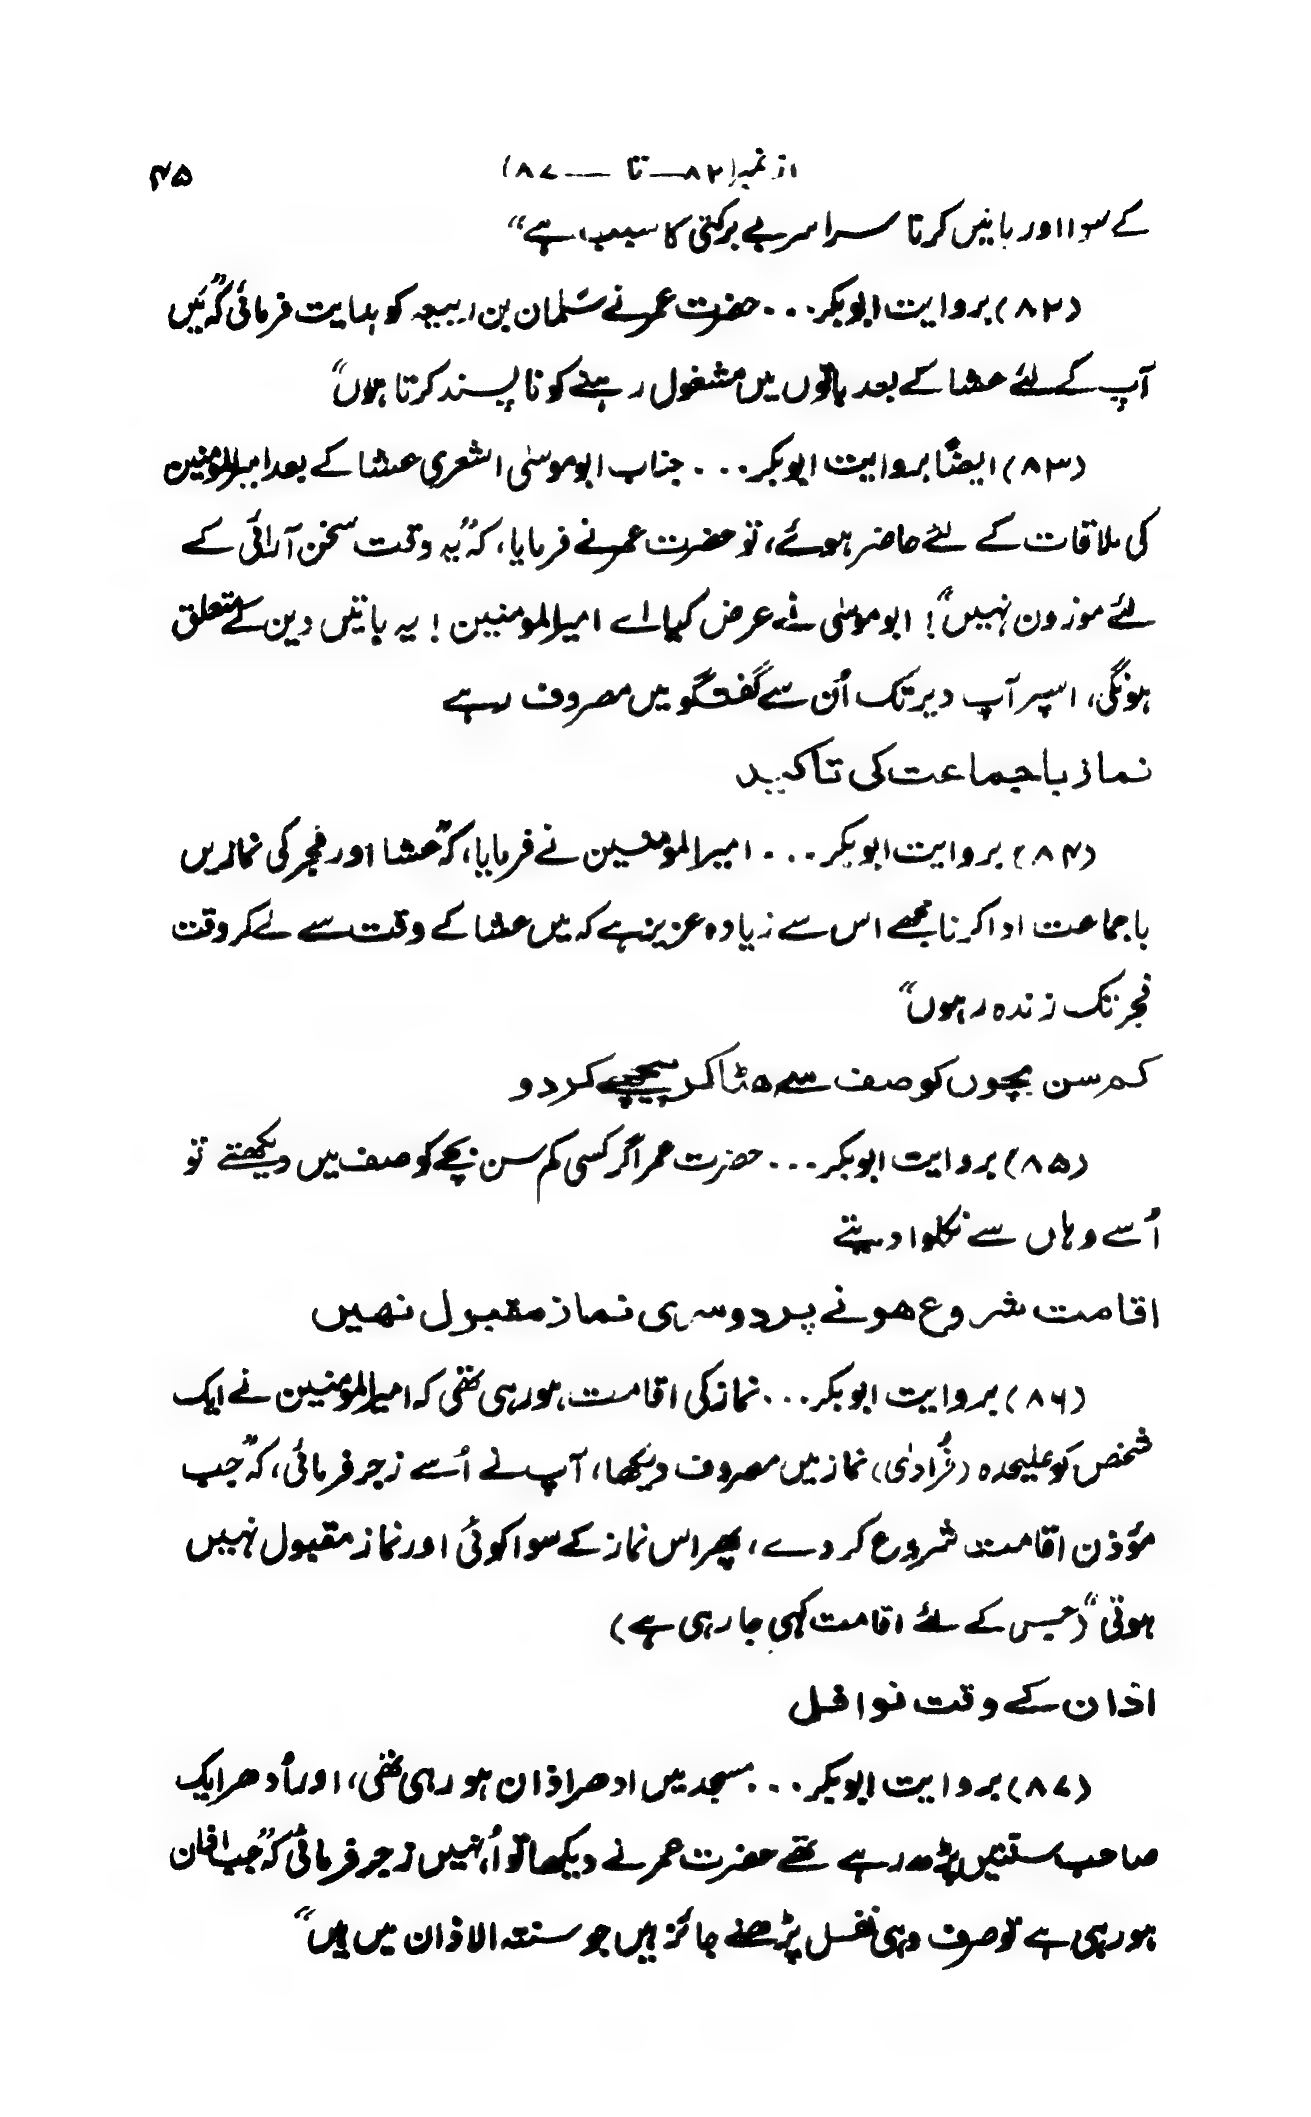 از نمبر (۸۲ — تا — ۸۷) ۴۵
کے سوا اور باتیں کرنا سراسر بے برکتی کا سبب ہے“
(۸۲) بروایت ابوبکر... حضرت عمر نے سلمان بن ربیعہ کو ہدایت فرمائی کہ ”میں
آپ کے لئے عشا کے بعد باتوں میں مشغول رہنے کو ناپسند کرتا ہوں“
(۸۳) ایضاً بروایت ابوبکر... جناب ابو موسیٰ اشعری عشا کے بعد امیرالمومنین
کی ملاقات کے لئے حاضر ہوئے، تو حضرت عمر نے فرمایا، کہ ”یہ وقت سخن آرائی کے
لئے موزون نہیں“! ابو موسیٰ نے عرض کیا اے امیرالمومنین! یہ باتیں دین کے متعلق
ہونگی، اسپر آپ دیر تک اُن سے گفتگو میں مصروف رہے
نماز باجماعت کی تاکید
(۸۴) بروایت ابوبکر... امیرالمومنین نے فرمایا، کہ ”عشا اور فجر کی نمازیں
باجماعت ادا کرنا مجھے اس سے زیادہ عزیز ہے کہ میں عشا کے وقت سے لے کر وقت
فجر تک زندہ رہوں“
کم سن بچوں کو صف سے ہٹا کر پیچھے کر دو
(۸۵) بروایت ابوبکر... حضرت عمر اگر کسی کم سن بچے کو صف میں دیکھتے تو
اُسے وہاں سے نکلوا دیتے
اقامت شروع ہونے پر دوسری نماز مقبول نہیں
(۸۶) بروایت ابوبکر... نماز کی اقامت ہو رہی تھی کہ امیرالمومنین نے ایک
شخص کو علیحدہ (فُرادیٰ) نماز میں مصروف دیکھا، آپ نے اُسے زجر فرمائی، کہ ”جب
مؤذن اقامت شروع کر دے، پھر اس نماز کے سوا کوئی اور نماز مقبول نہیں
ہوتی“ (جس کے لئے اقامت کہی جا رہی ہے)
اذان کے وقت نوافل
(۸۷) بروایت ابوبکر... مسجد میں ادھر اذان ہو رہی تھی، اور اُدھر ایک
صاحب سنتیں پڑھ رہے تھے حضرت عمر نے دیکھا تو اُنہیں زجر فرمائی کہ ”جب اذان
ہو رہی ہے تو صرف وہی نفل پڑھنے جائز ہیں جو سنتہ الاذان میں ہیں“